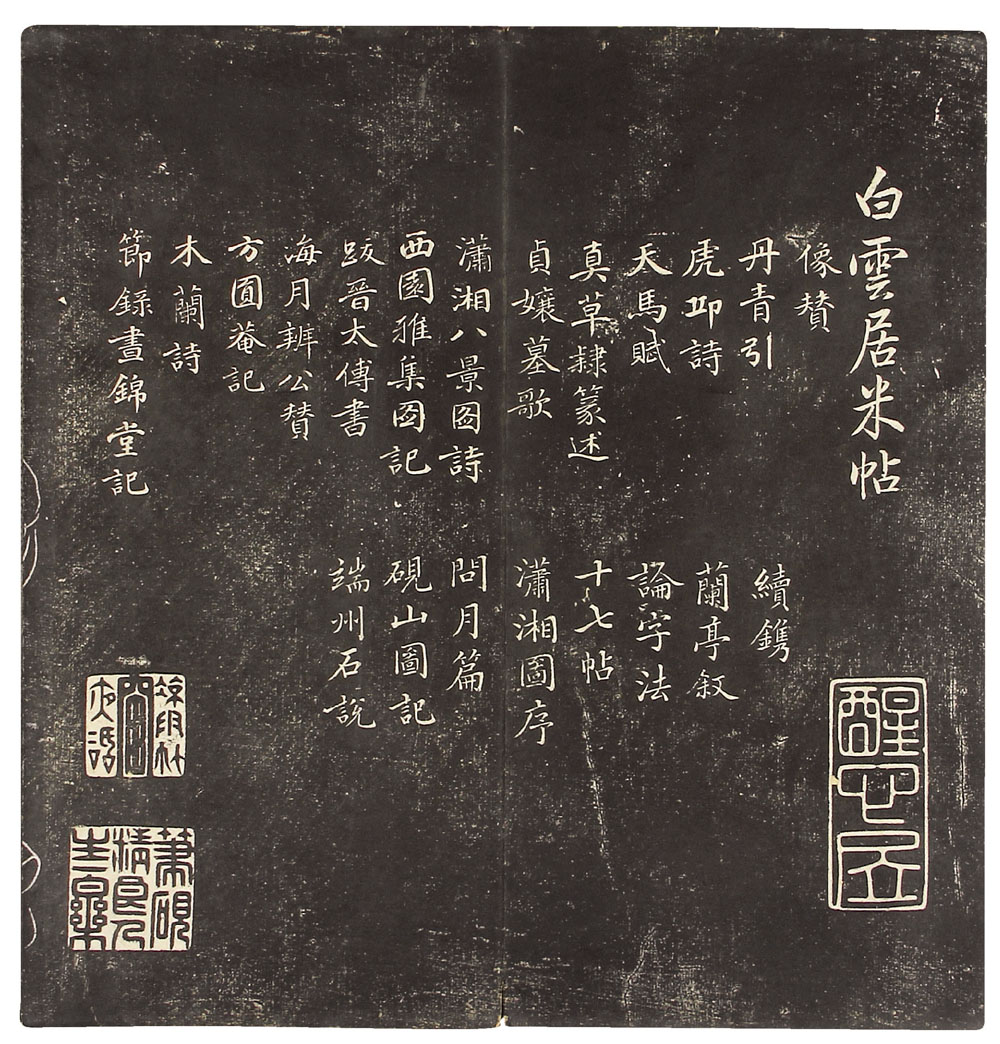 白雲居米帖
像贊
丹青引
虎丘詩
天馬賦
真草隸篆述
貞孃墓歌
瀟湘八景圖詩
西園雅集圖記
跋晉太傅書
海月辨公贊
方圓菴記
木蘭詩
節錄晝錦堂記
續鐫
蘭亭敘
論字法
十七帖
瀟湘圖序
問月篇
硯山圖記
端州石說
筆硯精良人生一樂